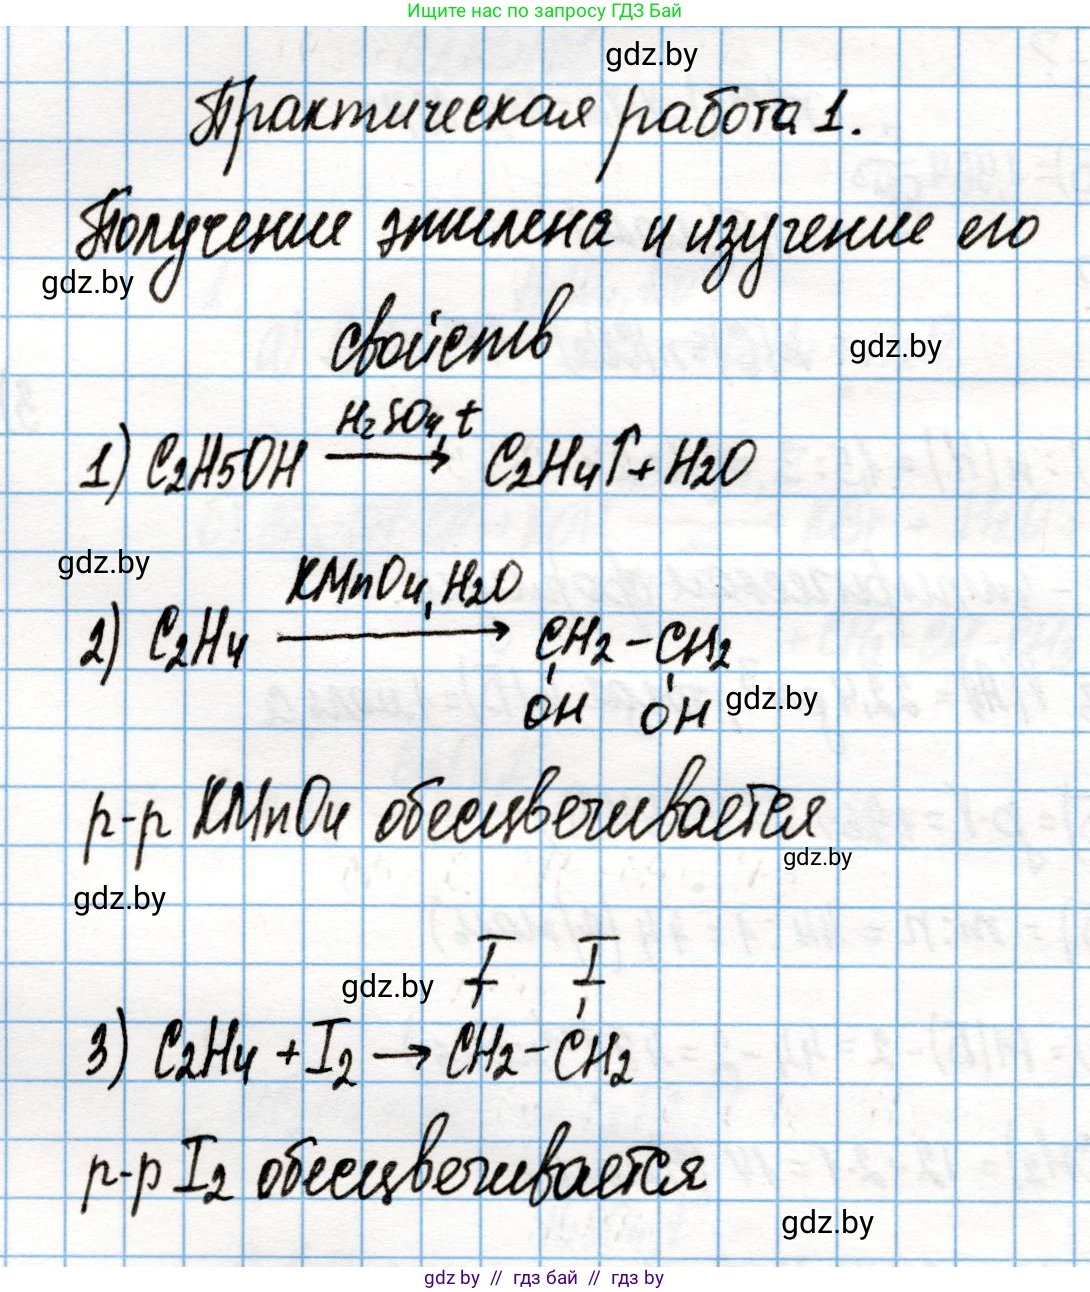 Ищите нас по запросу ГДЗ Бай
gdz.by
Практическая работа 1.
Получение этилена и изучение его
gdz.by
свойств
gdz.by
H2SO4, t
1) C2H5OH → C2H4↑ + H2O
gdz.by
KMnO4, H2O
2) C2H4 → CH2-CH2
OH OH gdz.by
р-р KMnO4 обесцвечивается
gdz.by
gdz.by
I I
gdz.by
3) C2H4 + I2 → CH2-CH2
р-р I2 обесцвечивается
gdz.by
gdz.by // гдз бай // гдз by